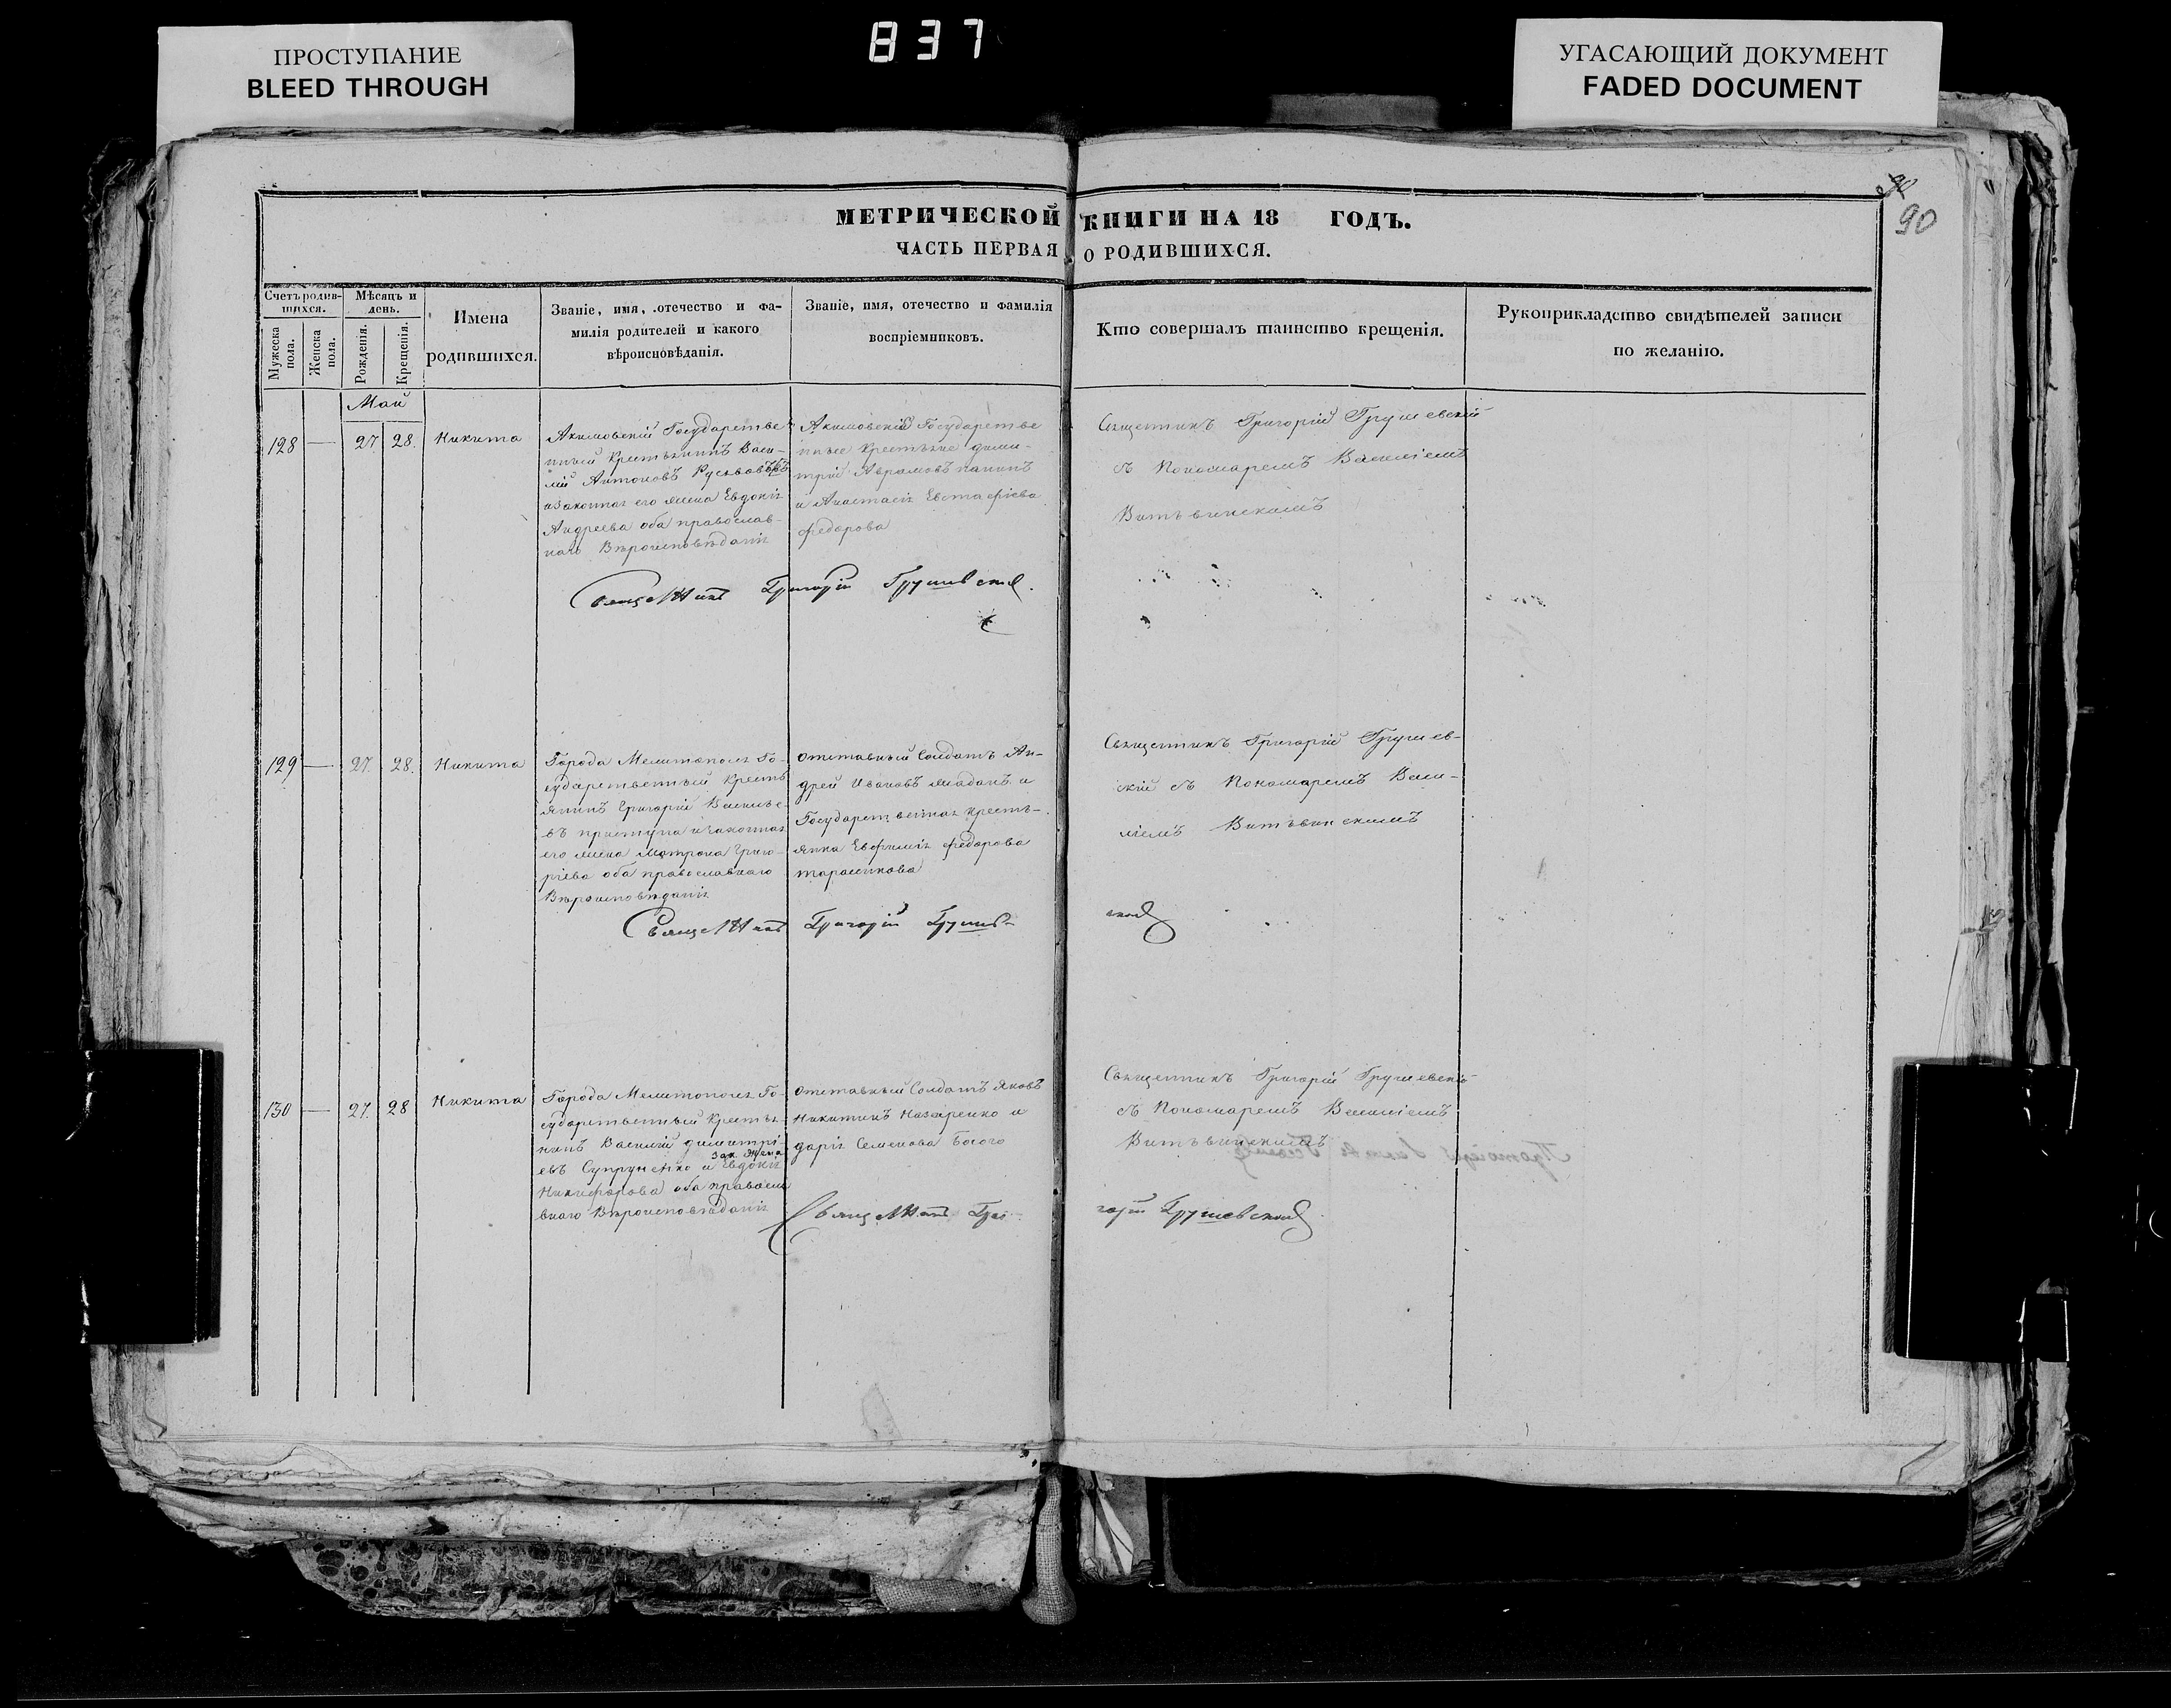 ПРОСТУПАНИЕ
BLEED THROUGH
837
УГАСАЮЩИЙ ДОКУМЕНТ
FADED DOCUMENT
90
90
МЕТРИЧЕСКОЙ КНИГИ НА 18 ГОДЪ.
ЧАСТЬ ПЕРВАЯ О РОДИВШИХСЯ.
Счетъ родив-
шихся.
Мужеска
пола.
Женска
пола.
Мѣсяцъ и
день.
Рожденія.
Крещенія.
Имена
родившихся.
Званіе, имя, отечество и фа-
милія родителей и какого
вѣроисповѣданія.
Званіе, имя, отечество и фамилія
воспріемниковъ.
Кто совершалъ таинство крещенія.
Рукоприкладство свидѣтелей записи
по желанію.
Май
128 — 27. 28. Никита
Акимовскій Государстве
нный Крестьянинъ Васи-
лій Антоновъ
изаконная его жена Евдокія
Андреева оба православ-
наго Вѣроисповѣданія
Акимовскіе Государстве
нные Крестьяне Дими-
трій Аврамовъ
и Анастасія Евстафіева
Федорова
Священникъ Григорій Грушевскій
съ Пономаремъ Василіемъ
Витвинскимъ
Священникъ Григорій Грушевский.
129 — 27. 28. Никита
Города Мелитополя Го-
сударственный Крестья
янинъ Григорій Василье
въ и законная
его жена Матрона Григо-
ріева оба православнаго
Вѣроисповѣданія
отставный Солдатъ Ан-
дрей Ивановъ и
Государственная кресть-
янка Евфимія Федорова
Священникъ Григорій Грушев-
скій съ Пономаремъ Васи-
ліемъ Витвинскимъ
Священникъ Григорій Грушев-
ский
130 — 27. 28 Никита
Города Мелитополя Го-
сударственный Крестья-
нинъ Василій Димитрі-
евъ Супруненко и зак. жена Евдокія
Никифорова оба правосла
внаго Вѣроисповѣданія
отставный Солдатъ Яковъ
Никитинъ Назаренко и
Дарія Семенова
Священникъ Григорій Грушевскій
съ Пономаремъ Василіемъ
Витвинскимъ
Священникъ Гри-
горій Грушевский.